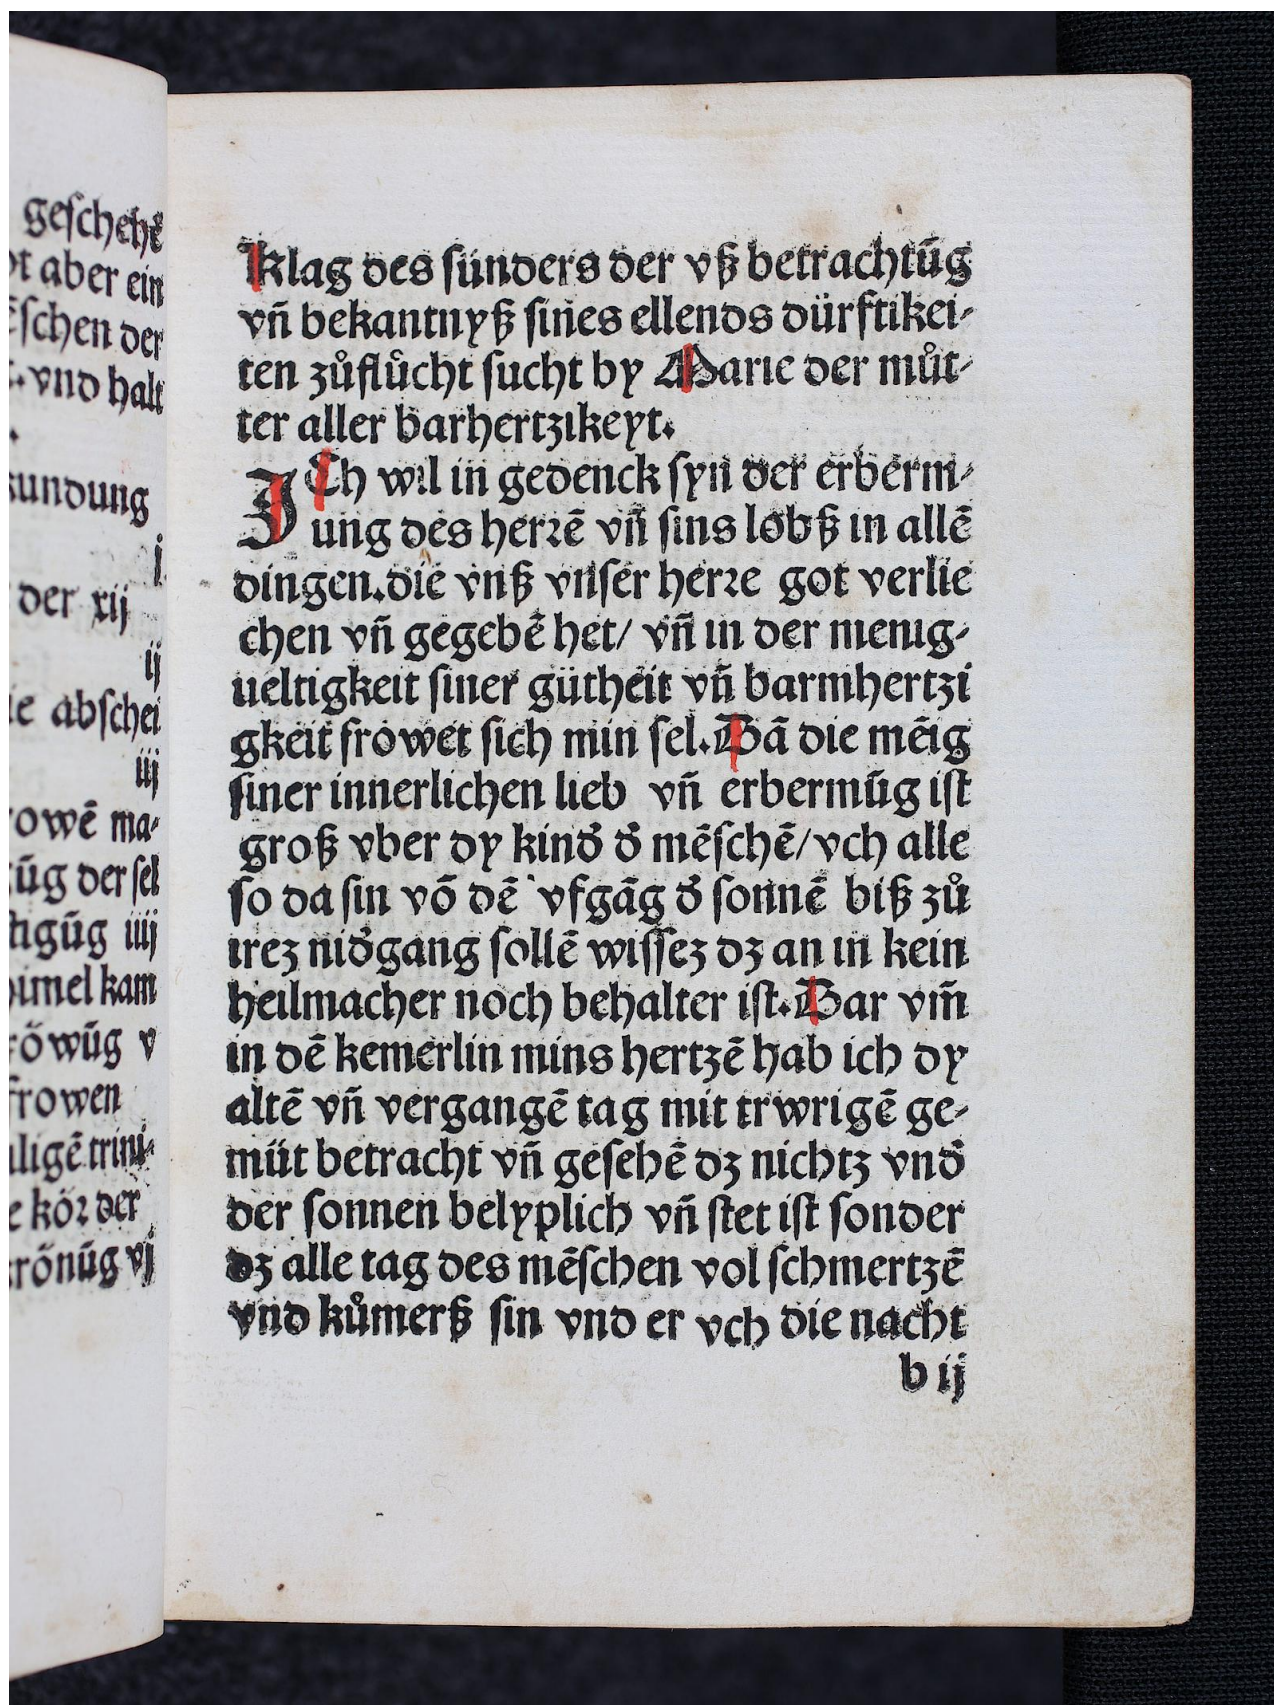 geschehē
t aber ein
schen der
vnd halt
kundung
i.
der xij
ij
ie abschei
iij
owē ma-
ūg der sel
tigūg iiij
himel kam
röwūg v
frowen
iligē trini-
e kör der
krönūg vj
Klag des sünders der vß betrachtūg
vñ bekantnyß sines ellends dürftikei-
ten zůflücht sucht by Marie der můt-
ter aller barhertzikeyt.
ICh wil in gedenck syn der erberm-
ung des herrē vñ sins lobß in allē
dingen.die vnß vnser herre got verlie
chen vñ gegebē het/ vñ in der menig-
ueltigkeit siner gütheit vñ barmhertzi
gkeit frowet sich min sel.Dā die mēig
siner innerlichen lieb vñ erbermūg ist
groß vber dy kind̕ d̕ mēschē/vch alle
so da sin vō dē vfgāg d̕ sonnē biß zů
irez nid̕gang sollē wissez dz an in kein
heilmacher noch behalter ist.Dar vm̄
in dē kemerlin mins hertzē hab ich dy
altē vñ vergangē tag mit trwrigē ge-
müt betracht vñ gesehē dz nichtz vnd̕
der sonnen belyplich vñ stet ist sonder
dz alle tag des mēschen vol schmertzē
vnd kůmerß sin vnd er vch die nacht
b ij